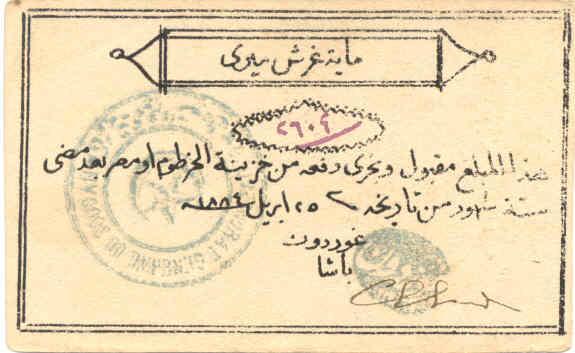 ماية غرش ميرى
هذا المبلغ مقبول ويجرى دفعه من خزينة الخرطوم او مصر بعد مضى
ستة شهور من تاريخه ٢٥ ابريل ١٨٨٤
غوردون
باشا
GÉNÉRAL DU SOUDAN